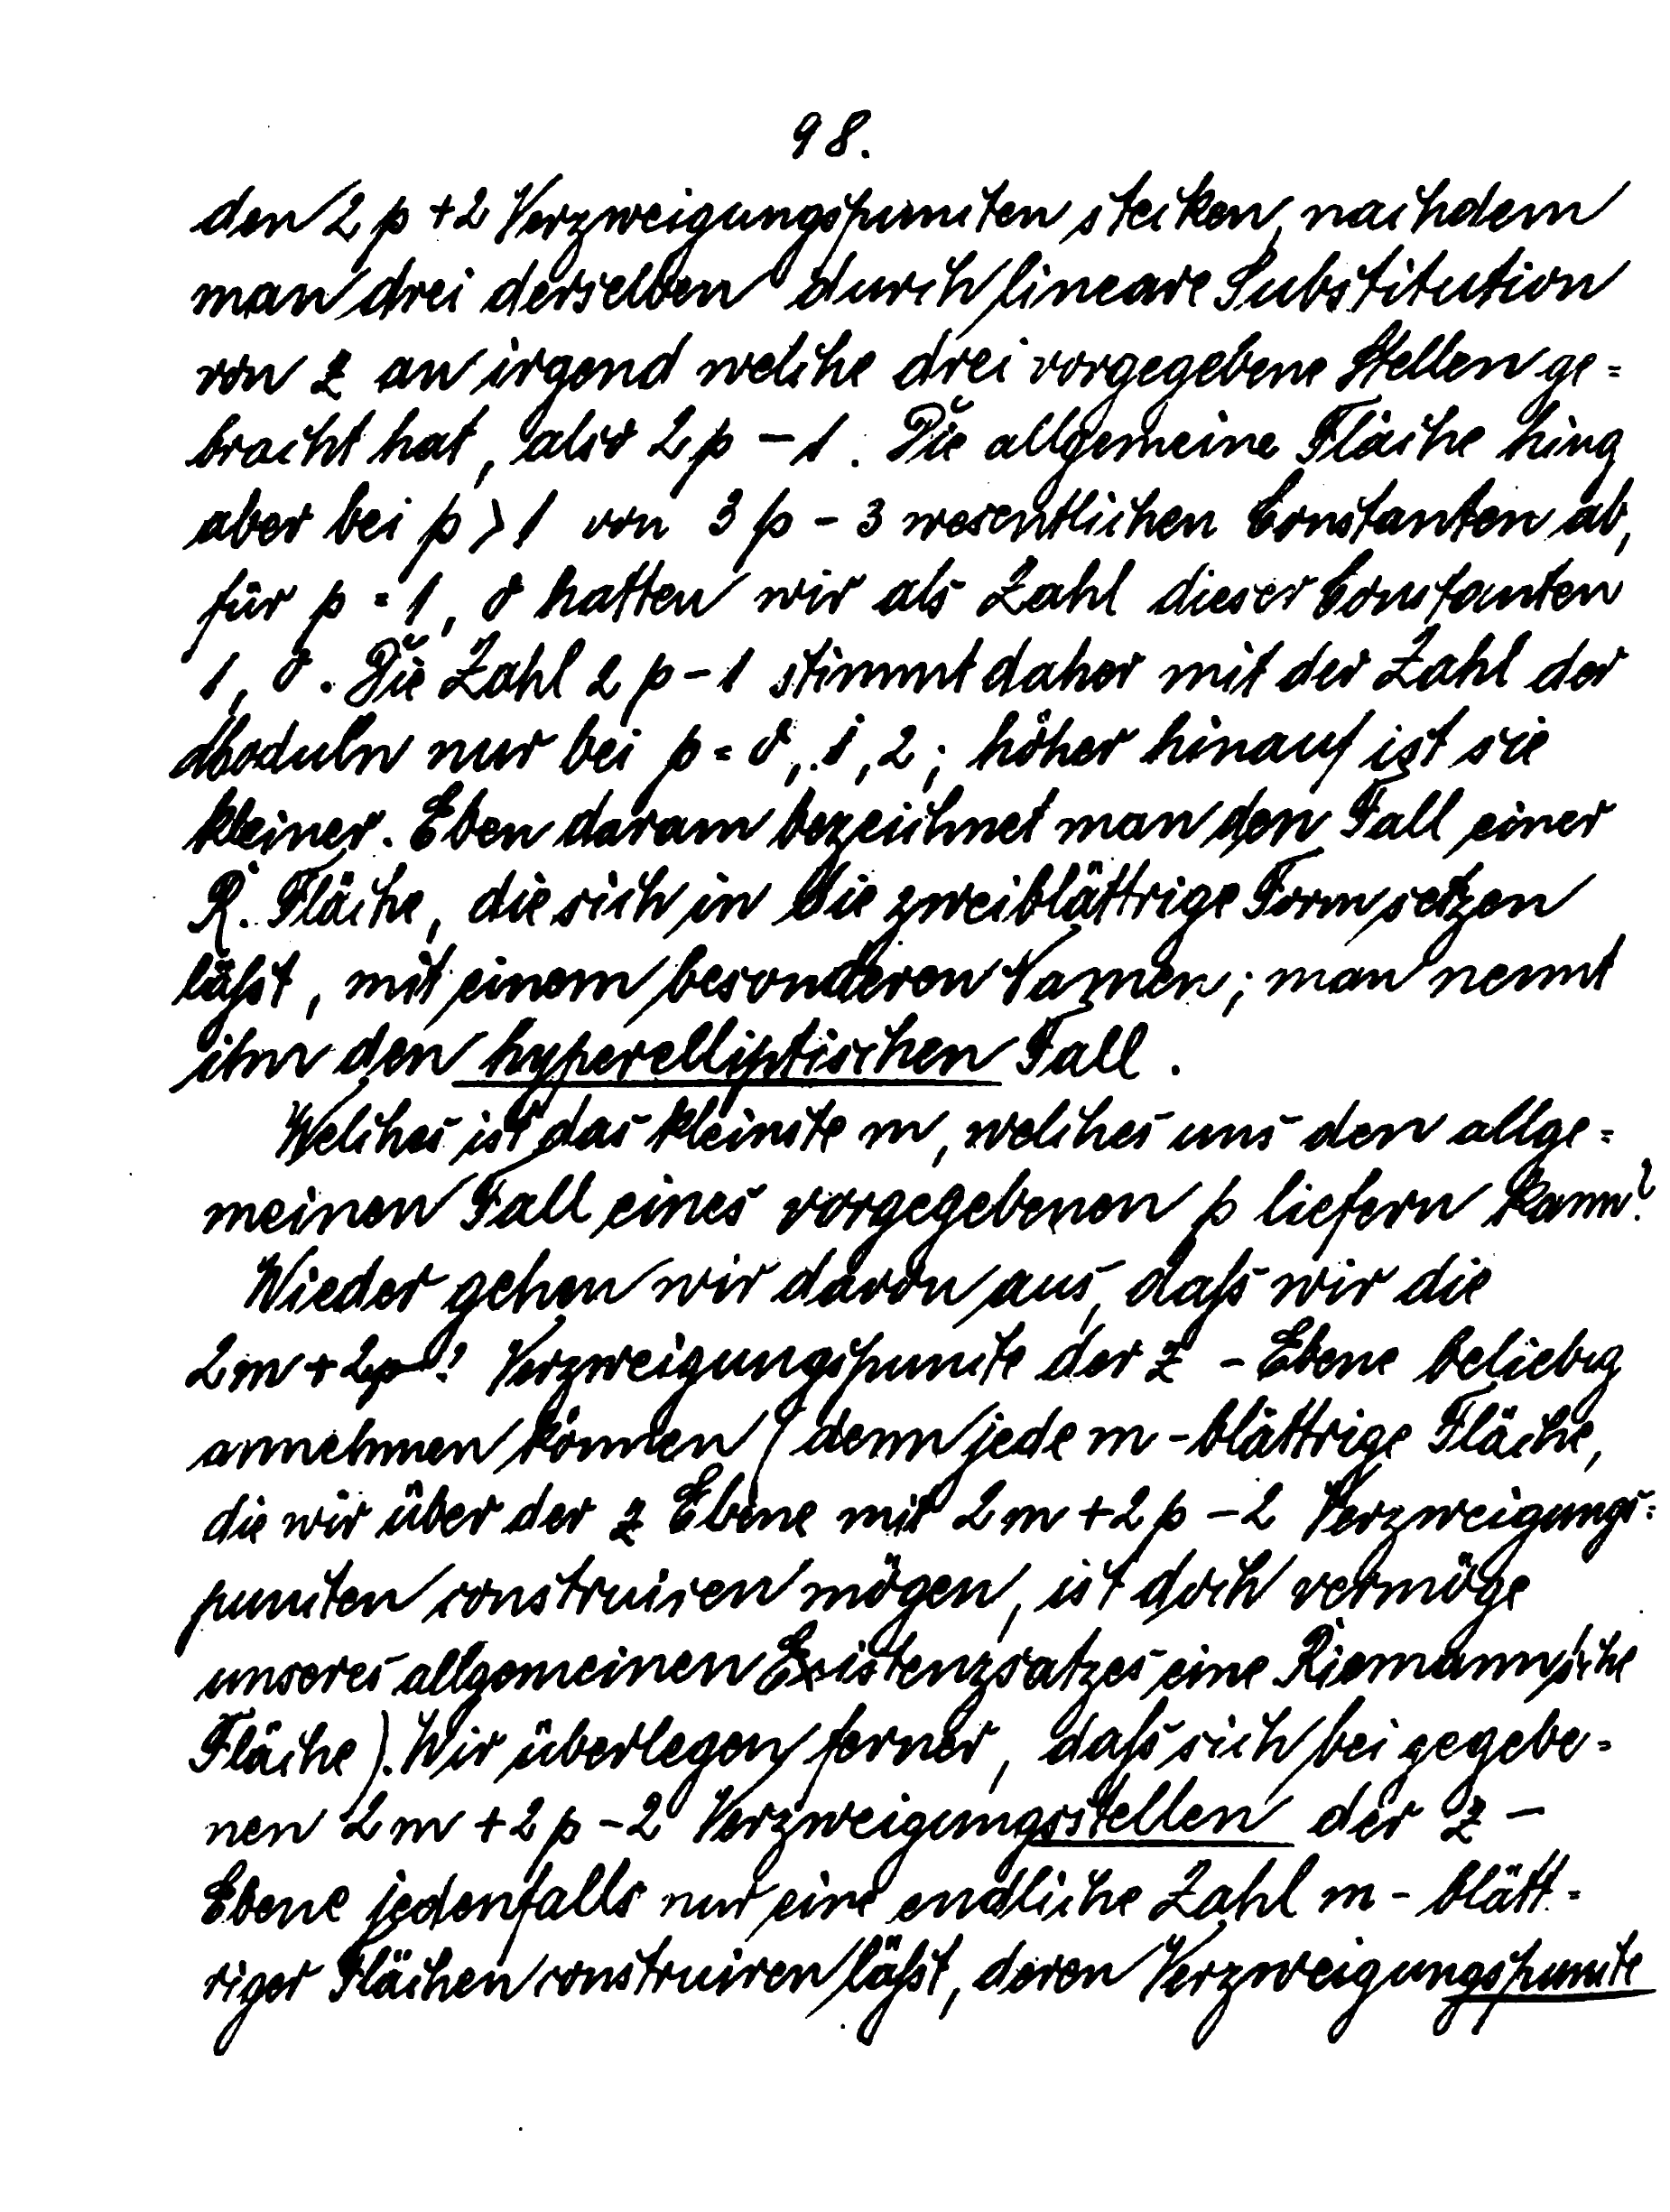 98.
den 2p+2 Verzweigungspuncten stecken, nachdem
man drei derselben durch lineare Substitution
von z an irgend welche drei vorgegebene Stellen ge=
bracht hat, also 2p-1. Die allgemeine Fläche hing
aber bei p>1 von 3p-3 wesentlichen Constanten ab,
für p=1, 0 hatten wir als Zahl dieser Constanten
1, 0. Die Zahl 2p-1 stimmt daher mit der Zahl der
Moduln nur bei p=0, 1, 2; höher hinauf ist sie
kleiner. Eben darum bezeichnet man den Fall einer
R. Fläche, die sich in die zweiblättrige Form setzen
läßt, mit einem besonderen Namen; man nennt
ihn den hyperelliptischen Fall.
Welches ist das kleinste m, welches uns den allge=
meinen Fall eines vorgegebenen p liefern kann?
Wieder gehen wir davon aus, daß wir die
2m+2p Verzweigungspuncte der z-Ebene beliebig
annehmen können (denn jede m-blättrige Fläche,
die wir über der z Ebene mit 2m+2p-2 Verzweigungs=
puncten construiren mögen, ist doch vermöge
unseres allgemeinen Existenzsatzes eine Riemann'sche
Fläche). Wir überlegen ferner, daß sich bei gegebe=
nen 2m+2p-2 Verzweigungsstellen der z-
Ebene jedenfalls nur eine endliche Zahl m-blätt=
riger Flächen construiren läßt, deren Verzweigungspuncte